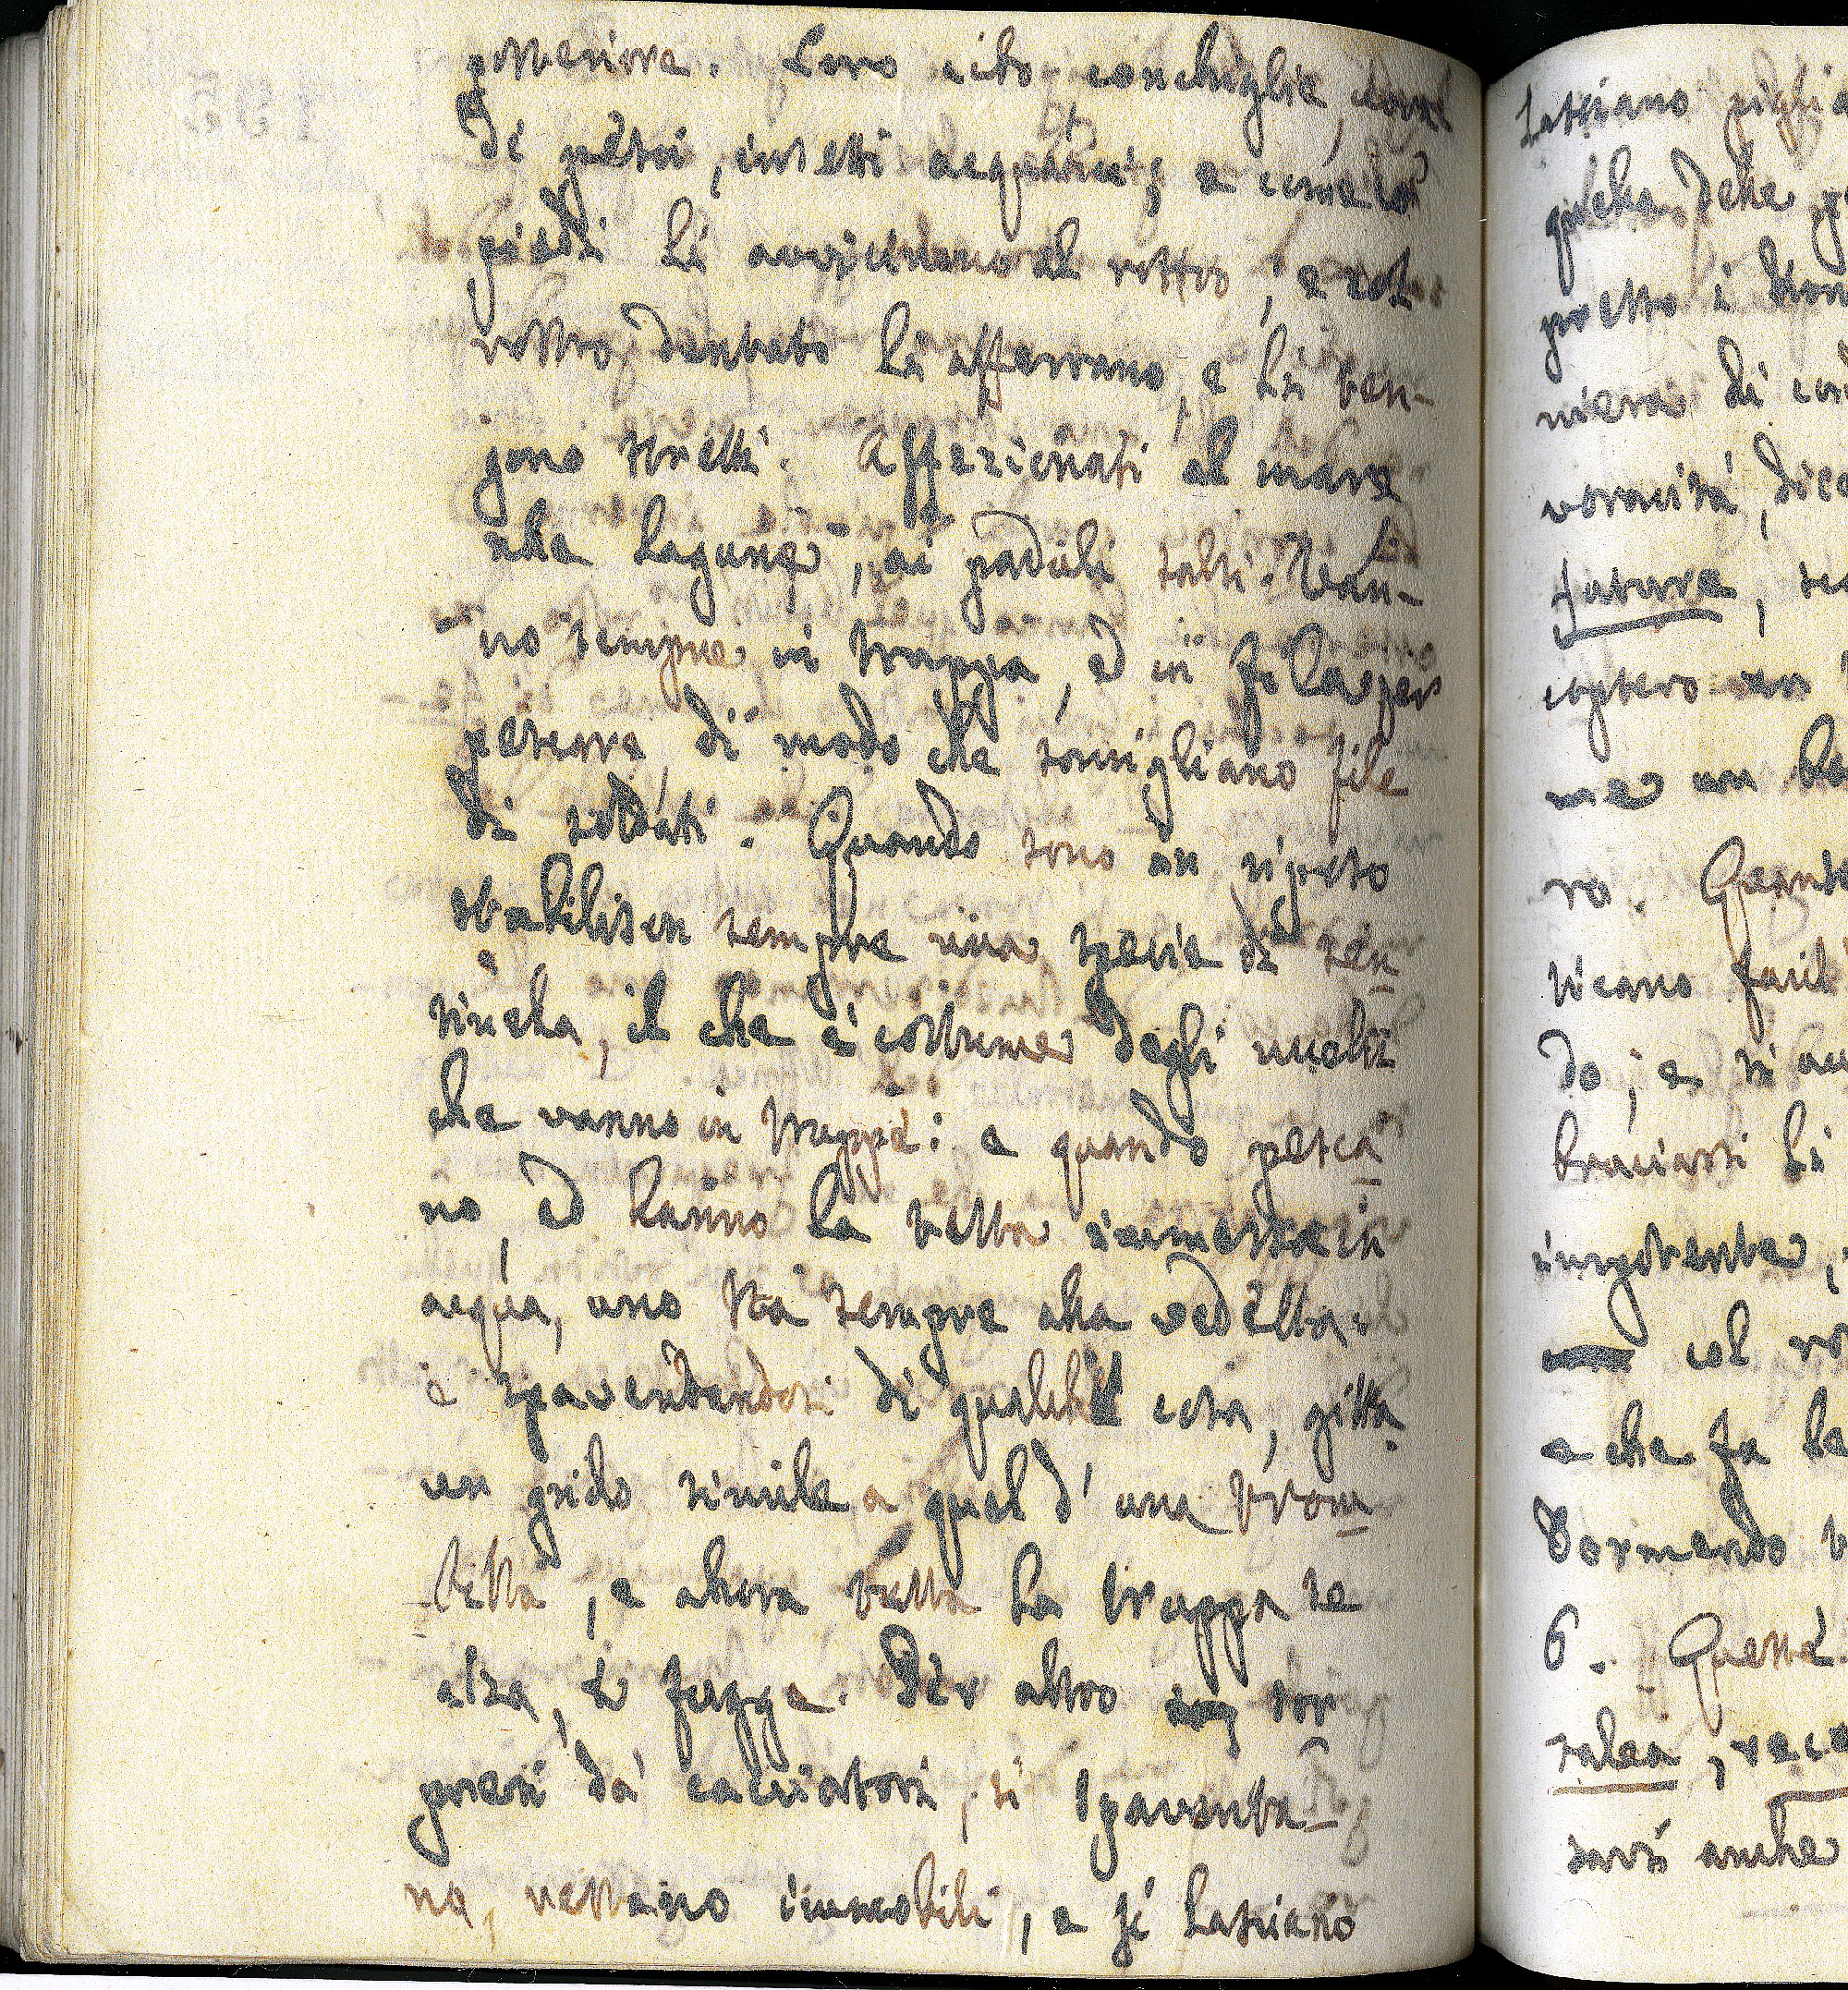 posteriore. Loro cibo conchiglie, uova
di pesci, insetti acquatici; e come co'
piedi li avvicinano al rostro, e col
rostro dentato li afferrano, e li ten-
gono stretti. Affezionati al mare
alle lagune, ai paduli salsi. Van-
no sempre in truppa, ed in fila per
pescare, di modo che somigliano file
di soldati. Quando sono in riposo
stabiliscon sempre una specie di sen
tinella, il che è costume degli uccelli
che vanno in truppe: e quando pesca
no, ed hanno la testa immersa in
acqua, uno sta sempre alla vedetta:
e spaventandosi di qualche cosa, gitta
un grido simile a quel d'una trom
betta, e allora tutta la truppa se
alza, e fugge. Per altro sor
presi da' cacciatori, si spaventa-
no, restano immobili, e si lasciano
lasciano piglia
quella delle
presso i
niera di con
voracità, dice
fatture, se
coptero un
me un be
ro. Quando
ticano facil
do; e si au
bracciarsi li
impotente,
col ro
e che fa la
Dormendo
6. Queste
salea, rece
darsi anche